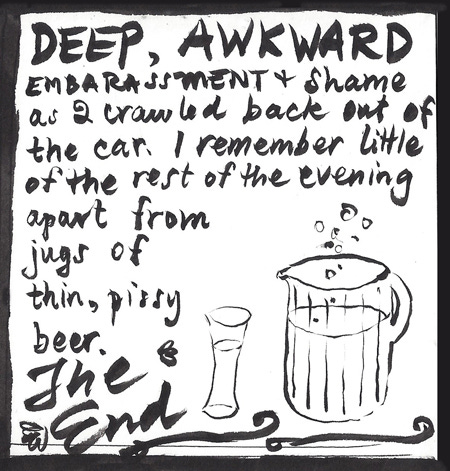 DEEP, AWKWARD
EMBARASSMENT & Shame
as I crawled back out of
the car. I remember little
of the rest of the evening
apart from
jugs of
thin, pissy
beer.
The
End